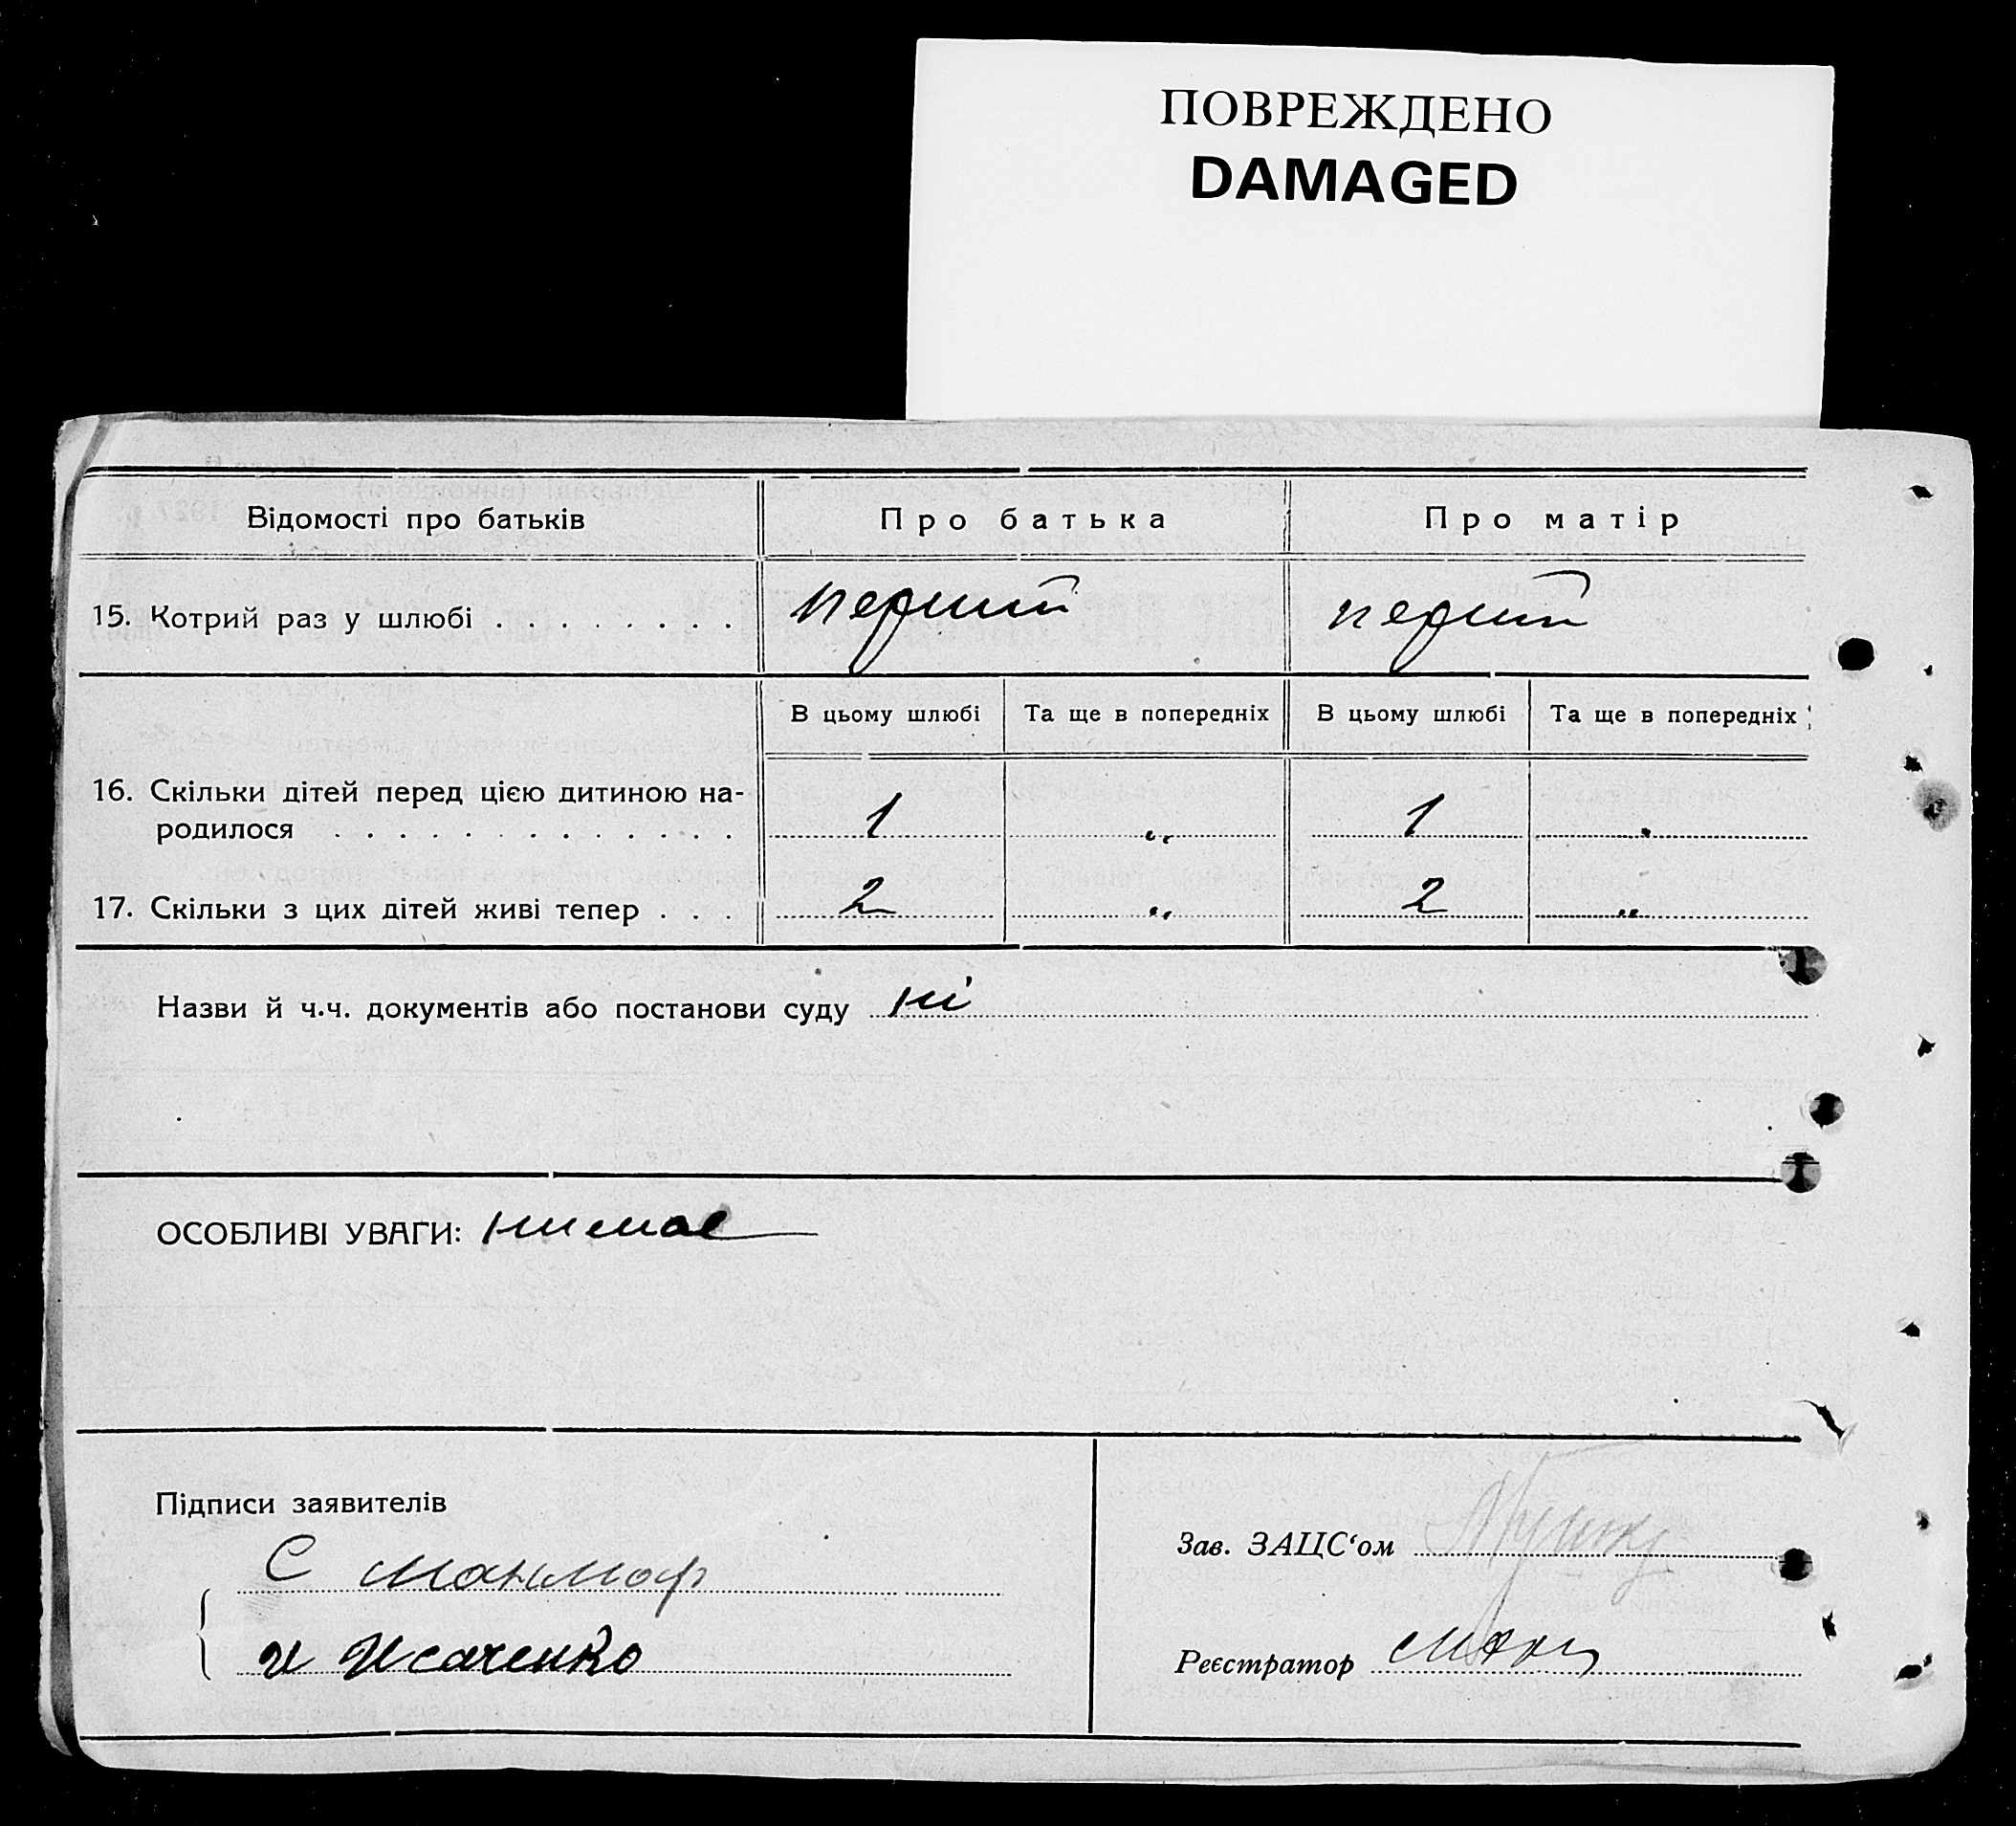 ПОВРЕЖДЕНО
DAMAGED
Відомості про батьків
Про батька
Про матір
15. Котрий раз у шлюбі . . . . . . . .
перший
перший
В цьому шлюбі
Та ще в попередніх
В цьому шлюбі
Та ще в попередніх
16. Скільки дітей перед цією дитиною на-
родилося . . . . . . . . . . . . .
1
„
1
„
17. Скільки з цих дітей живі тепер . . .
2
„
2
„
Назви й ч.ч. документів або постанови суду ні
ОСОБЛИВІ УВАГИ: нимае
Підписи заявителів
С
И Исаченко
Зав. ЗАЦС‘ом
Реєстратор